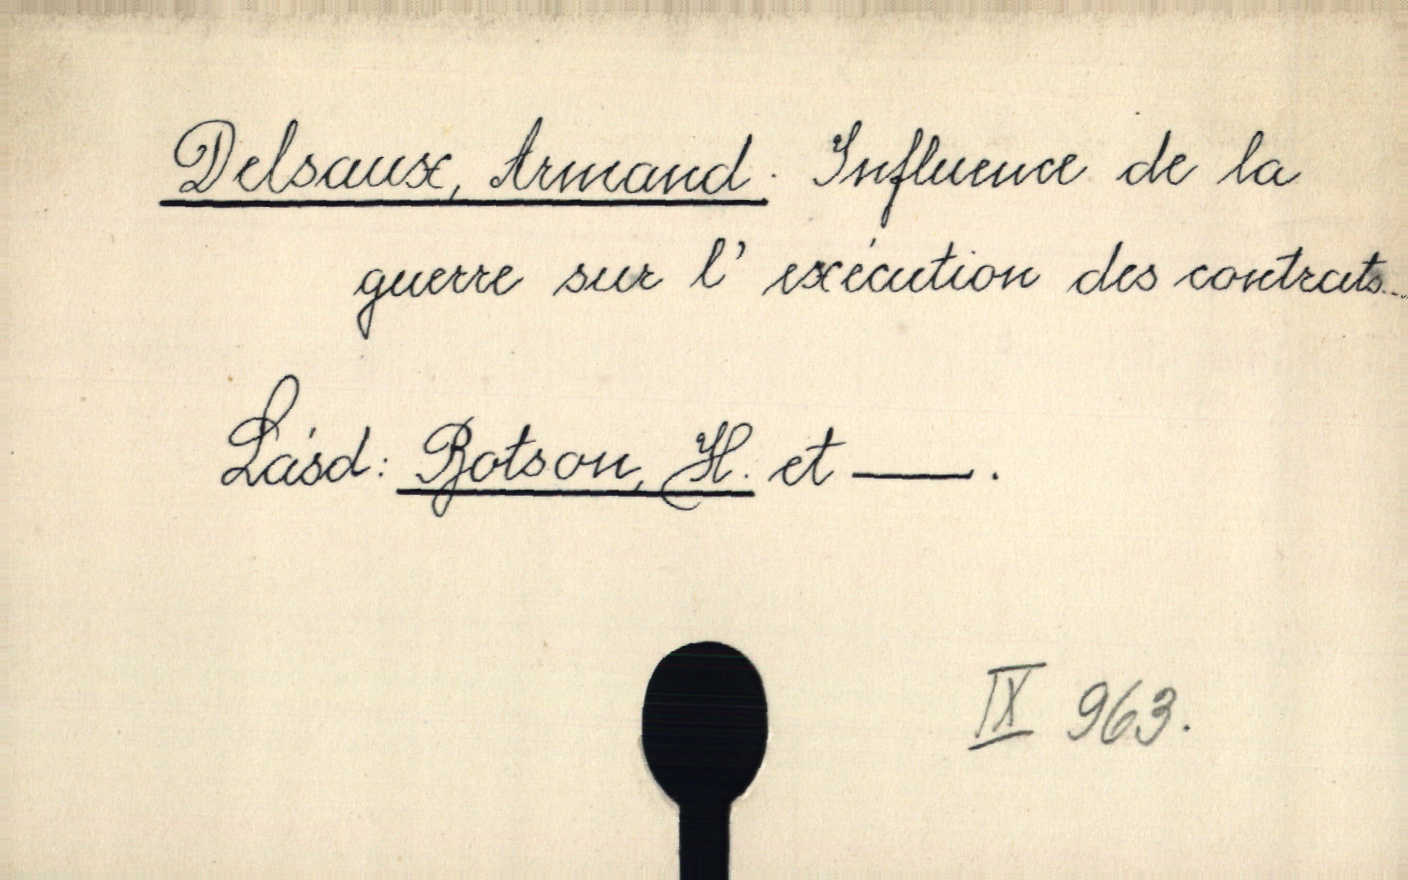 Delsaux, Armand. Influence de la
guerre sur l' exécution des contrats...
Lásd: Botson, H. et ——.
IX 963.